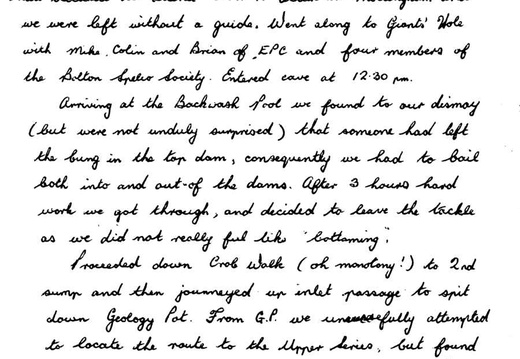 we were left without a guide. Went along to Giants' Hole
with Mike, Colin and Brian of EPC and four members of
the Bolton Speleo Society. Entered cave at 12:30 pm.
Arriving at the Backwash Pool we found to our dismay
(but were not unduly surprised) that someone had left
the bung in the top dam, consequently we had to bail
both into and out-of the dams. After 3 hours hard
work we got through, and decided to leave the tackle
as we did not really feel like "bottoming".
Proceeded down Crab Walk (oh monotony!) to 2nd
sump and then journeyed up inlet passage to spit
down Geology Pot. From G.P. we unsuccessfully attempted
to locate the route to the Upper Series, but found